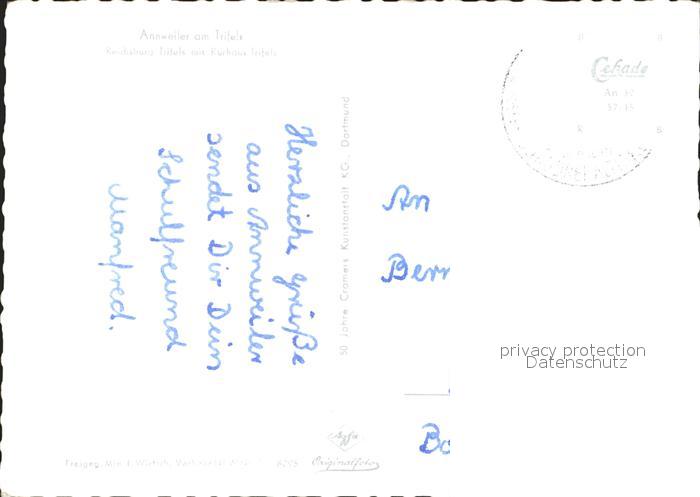 Annweiler am Trifels
Reichsburg Trifels mit Kurhaus Trifels
Herzliche Grüße
aus Annweiler
sendet Dir Dein
Schulfreund
Manfred.
50 Jahre Cramers Kunstanstalt KG., Dortmund
Cekade
An 37
An
Berr
privacy protection
Datenschutz
Bo
Agfa
Originalfoto
Freigeg. Min. f. Wirtsch.